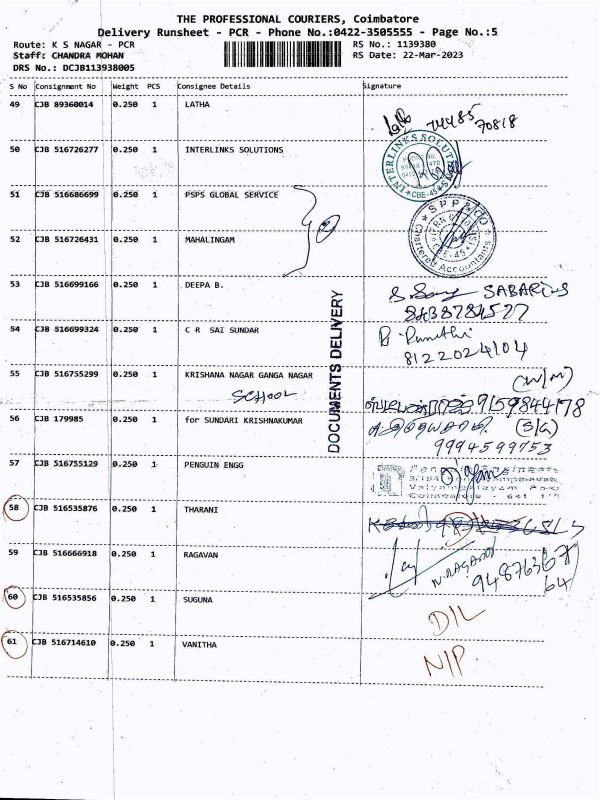 THE PROFESSIONAL COURIERS, Coimbatore
Delivery Runsheet - PCR - Phone No.:0422-3505555 - Page No.:5
Route: K S NAGAR - PCR
RS No.: 1139380
Staff: CHANDRA MOHAN
RS Date: 22-Mar-2023
DRS No.: DCJB113938005
S No Consignment No Weight PCS Consignee Details Signature
49 CJB 89360014 0.250 1 LATHA
74485
70818
50 CJB 516726277 0.250 1 INTERLINKS SOLUTIONS
INTERLINKS SOLUTIONS
CBE-45
51 CJB 516686699 0.250 1 PSPS GLOBAL SERVICE
2
SPP & CO
Chartered Accountants
CBE-45
52 CJB 516726431 0.250 1 MAHALINGAM
53 CJB 516699166 0.250 1 DEEPA B.
54 CJB 516699324 0.250 1 C R SAI SUNDAR
8122024104
DOCUMENTS DELIVERY
55 CJB 516755299 0.250 1 KRISHANA NAGAR GANGA NAGAR
SCHOOL
(W/M)
9159844178
56 CJB 179985 0.250 1 for SUNDARI KRISHNAKUMAR
(S/G)
9994599753
57 CJB 516755129 0.250 1 PENGUIN ENGG
58 CJB 516535876 0.250 1 THARANI
59 CJB 516666918 0.250 1 RAGAVAN
N. RAGAVAN
60 CJB 516535856 0.250 1 SUGUNA
D/L
61 CJB 516714610 0.250 1 VANITHA
N/P.